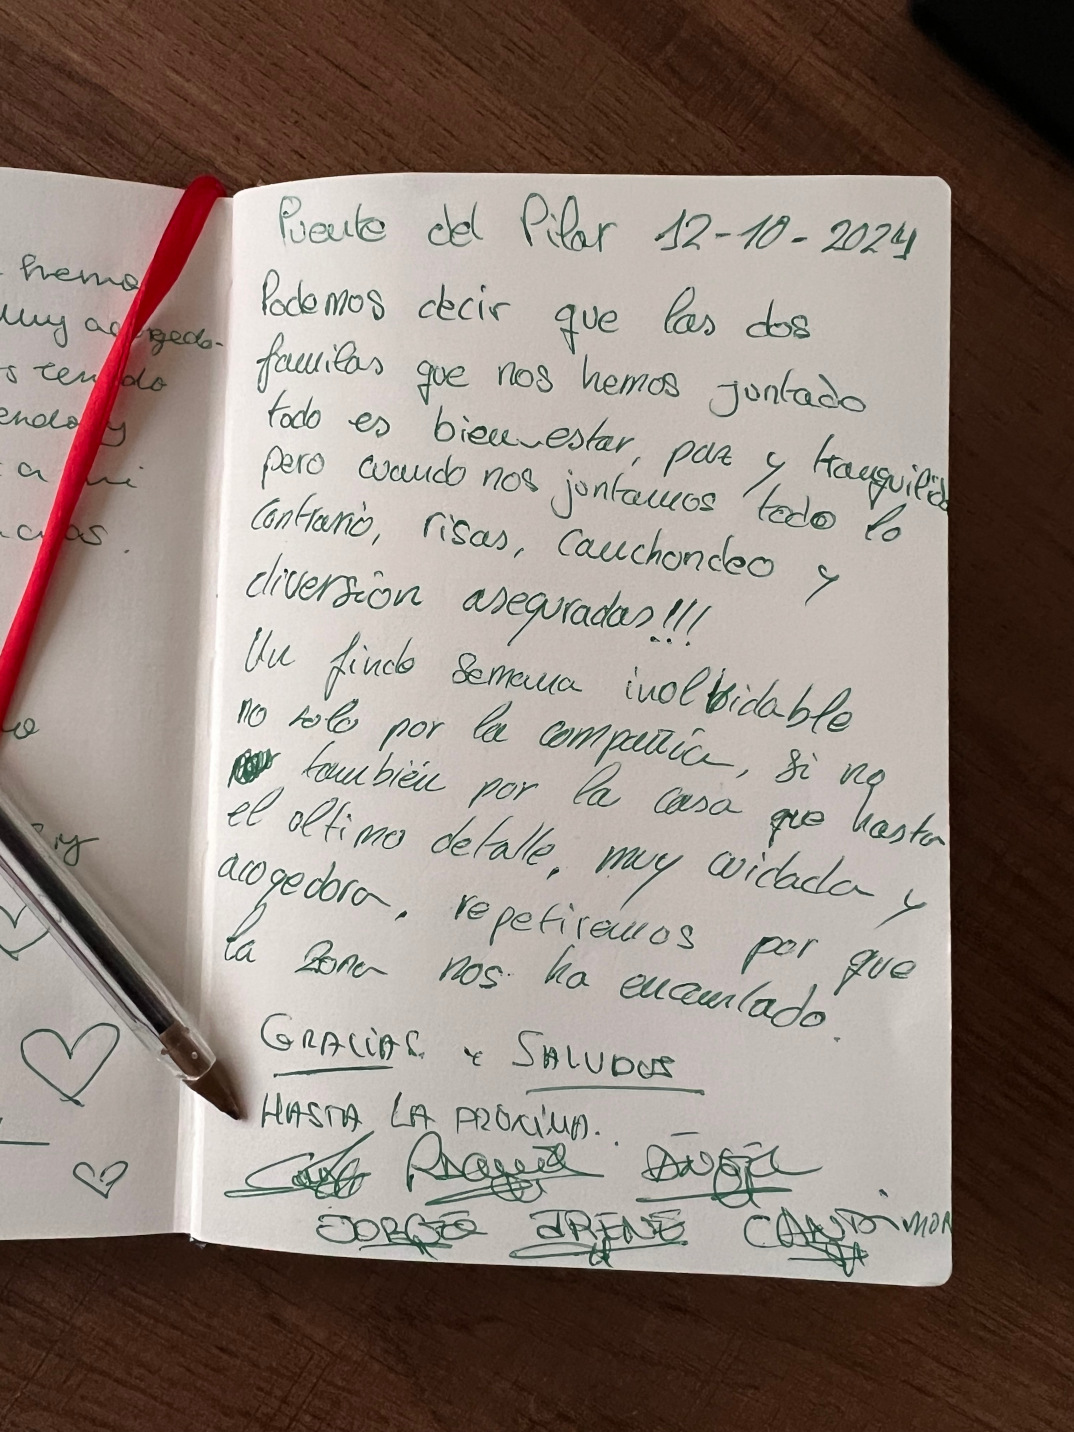 hemo
muy acogedo-
s tenido
endo y
a mi
Puente del Pilar 12-10-2024
Podemos decir que las dos
familas que nos hemos juntado
todo es bien-estar, paz y tranquilida
pero cuando nos juntamos todo lo
contrario, risas, cauchondeo y
diversión aseguradas!!!
Un finde semana inolbidable
no solo por la compañía, si no
también por la casa que hasta
el ultimo detalle, muy cuidada y
acogedora, repetiremos por que
la zona nos ha encantado.
GRACIAS y SALUDOS
HASTA LA PRÓXIMA..
Raquel ÁNGEL
JORGE IRENE